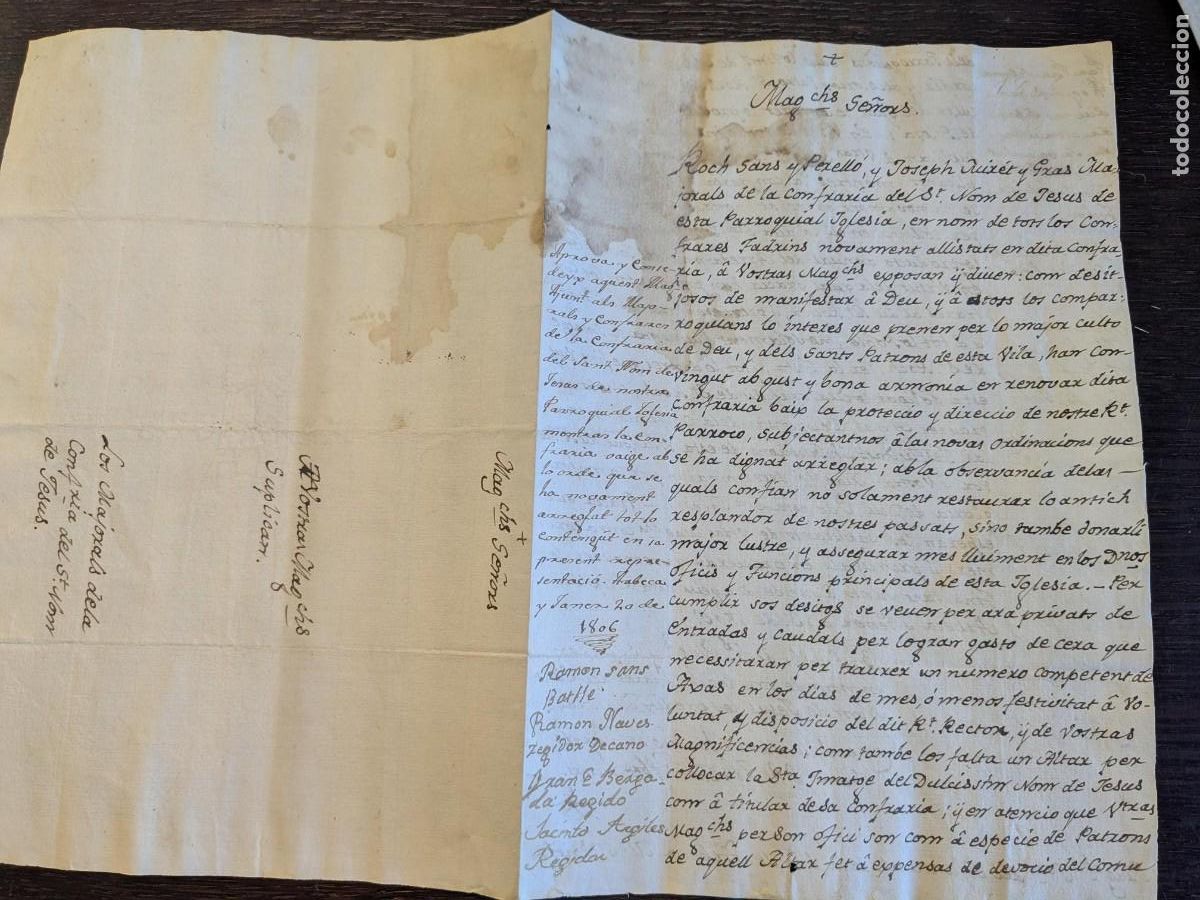 +
Mag.chs Señors.
Roch Sans y Perelló, y Joseph Miret y Gras Ma-
jorals de la Confraría del St. Nom de Jesus de
esta Parroquial Iglesia, en nom de tots los Con-
frares Fadrins novament allistats en dita Confra-
ría, â Vostras Magchs exposan ÿ diuen: com desit-
josos de manifestar â Deu, ÿ â tots los compar-
roquians lo interes que prenen per lo major culto
de Deu, y dels Sants Patrons de esta Vila, han con-
vingut ab gust y bona armonía en renovar dita
Confraria baix la protecció y direcció de nostre Rt.
Parroco, subjectantnos â las novas ordinacions que
se ha dignat arreglar; ab la observancia delas
quals confían no solament restaurar lo antich
resplandor de nostres passats, sino tambe donarli
major lustre, y assegurar mes lluiment en los Dnos
oficis y Funcions principals de esta Iglesia. - Per
cumplir sos desitgs se veuen per ara privats de
entradas y caudals per lo gran gasto de cera que
necessitaran per traurer un numero competent de
Axas en los días de mes, ó menos festivitat â vo-
luntat, y disposicio del dit Rt. Rector, ÿ de Vostras
Magnificencias; com tambe los falta un Altar per
collocar la Sta. Imatge del Dulcissim Nom de Jesus
com â titular de sa Confraria; ÿ en atencio que Vtras
Magchs per son ofici son com â especie de Patrons
de aquell Altar fet â expensas de devocio del Comu
Aprova y Conce-
deyx aquest Mag
Ajunt als Majo-
rals y Confrares
de la Confraria
del Sant Nom de
Jesus de nostra
Parroquial Iglesia
mentras la Con-
fraria vaige ab
lo orde que se
ha novament
arreglat tot lo
Contengut en la
present repre-
sentació Arbeca
y Janer 20 de
1806
Ramon Sans
Batlle
Ramon Naves
regidor Decano
Fran Berga
da Regido
Jacinto Argiles
Regidor
+
Mag.chs Señors
A Vostras Mag.chs
Suplican.
Los Majorals dela
Confria del St. Nom
de Jesus.
todocoleccion